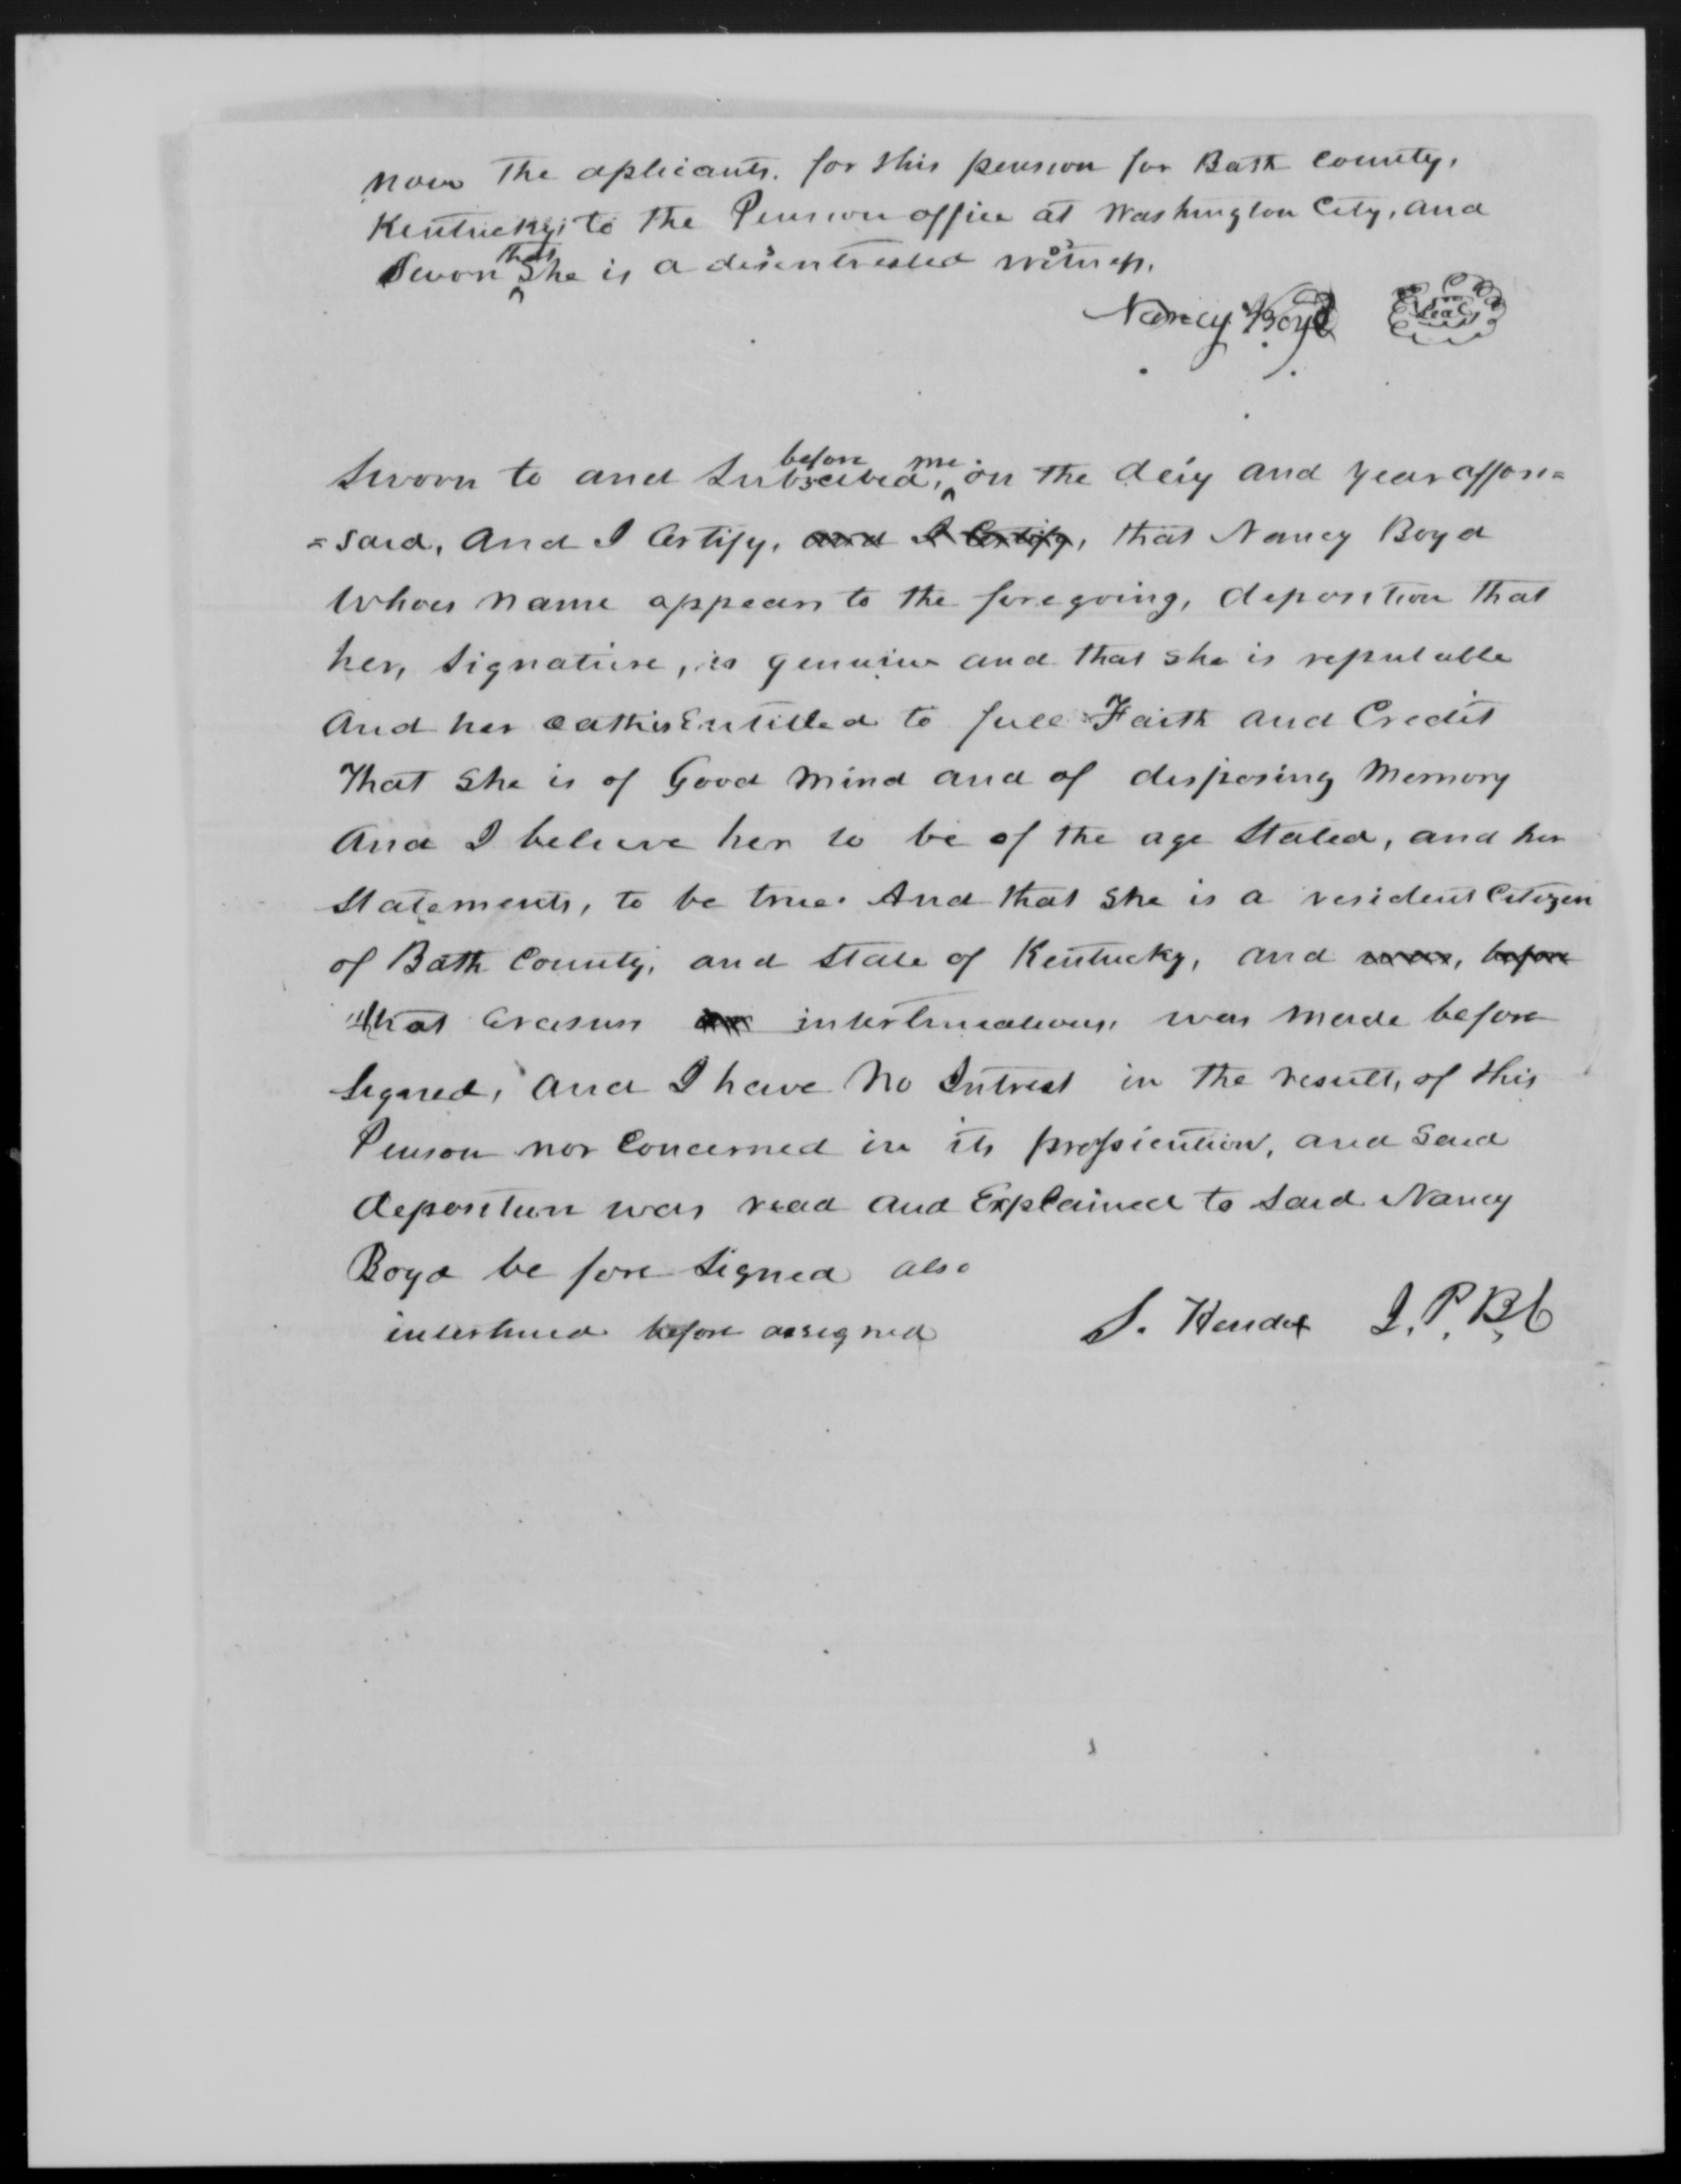 now the aplicants. for this pension for Bath County,
Kentucky, to the Pension office at Washington City, and
Sworn that she is a desentrested witness.
Nancy Boyd Seal
Sworn to and Subscribed, before me. on the day and year affore=
=said, and I Certify, and I Certify, that Nancy Boyd
Whoes name appears to the foregoing, deposition that
her, Signature, is genuine and that she is reputable
And her oath is Entitled to full Faith and Credit
That she is of Good mind and of disposing Memory
And I believe her to be of the age Stated, and her
Statements, to be true. And that she is a resident Citizen
of Bath County, and State of Kentucky, and was, before
that erasurs interlineations, was made before
Signed, and I have No Intrest in the result, of this
Penson nor Concerned in its prossicution, and Said
deposition was read and Explained to Said Nancy
Boyd be fore Signed also
interlined before assigned
S. Hendx J. P. B. C